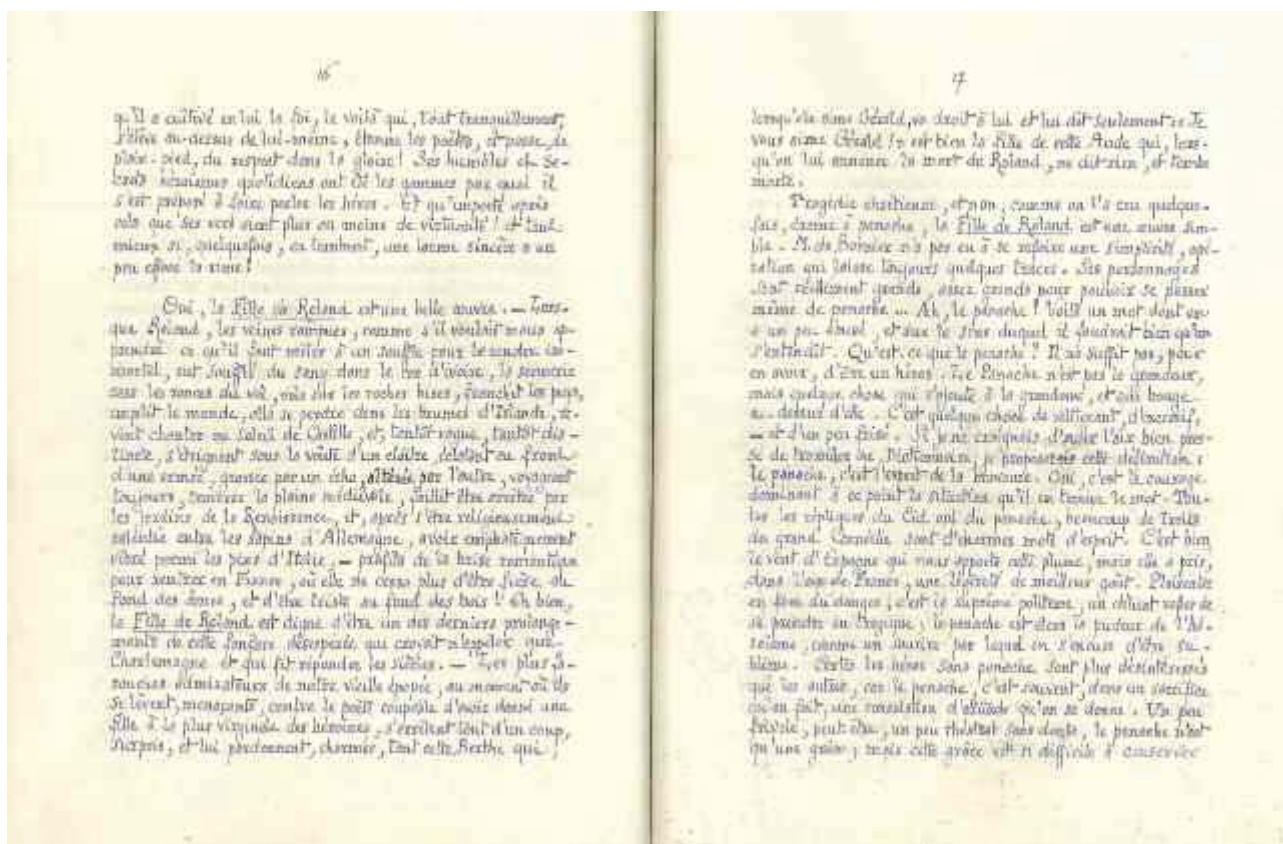 16
qu'il a cultivé en lui la foi, le voilà qui, tout tranquillement,
s'élève au-dessus de lui-même, étonne les poètes, et passe, de
plain-pied, du respect dans la gloire! Ses humbles et se-
crets héroïsmes quotidiens ont été les gammes par quoi il
s'est préparé à faire parler les héros. Et qu'importe après
cela que ses vers aient plus ou moins de virtuosité! et tant
mieux si, quelquefois, en tombant, une larme sincère a un
peu effacé la rime!
Oui, la Fille de Roland est une belle œuvre. — Lors-
que Roland, les veines rompues, comme s'il voulait nous ap-
prendre ce qu'il faut mêler à un souffle pour le rendre im-
mortel, eut soufflé du sang dans le cor d'ivoire, la sonnerie
sur les roches bises, franchit les pays,
emplit le monde, alla se perdre dans les brumes d'Islande, re-
vint chanter au soleil de Castille, et, tantôt rauque, tantôt dis-
tincte, s'éteignant sous la voûte d'un cloître, éclatant au front
d'une armée, grossie par un écho, altérée par l'autre, voyageant
toujours, traversa la plaine médiévale, faillit être arrêtée par
les jardins de la Renaissance, et, après s'être religieusement
entre les sapins d'Allemagne, avoir emphatiquement
vibré parmi les pins d'Italie, — profita de la brise romantique
pour rentrer en France, où elle ne cessa plus d'être fière au
fond des âmes, et d'être triste au fond des bois! Eh bien,
la Fille de Roland est digne d'être un des derniers prolonge-
ments de cette fanfare désespérée qui croyait n'appeler que
Charlemagne et qui fit répondre les siècles. — Les plus fa-
rouches admirateurs de notre vieille épopée, au moment où ils
se lèvent, menaçants, contre le poète coupable d'avoir donné une
fille à la plus virginale des héroïnes, s'arrêtent tout d'un coup,
surpris, et lui pardonnent, charmés, tant cette Berthe qui,
17
lorsqu'elle aime Gérald, va droit à lui et lui dit seulement: « Je
vous aime Gérald! » est bien la fille de cette Aude qui, lors-
qu'on lui annonce la mort de Roland, ne dit rien, et tombe
morte.
Tragédie chrétienne, et non, comme on l'a cru quelque-
fois, drame à panache, la Fille de Roland est une œuvre sim-
ple. M. de Bornier n'a pas eu à se refaire une simplicité, opé-
ration qui laisse toujours quelques traces. Ses personnages
sont réellement grands, assez grands pour pouvoir se passer
même de panache... Ah, le panache! Voilà un mot dont on
a un peu abusé, et sur le sens duquel il faudrait bien qu'on
s'entendît. Qu'est-ce que le panache? Il ne suffit pas, pour
en avoir, d'être un héros. Le Panache n'est pas la grandeur,
mais quelque chose qui s'ajoute à la grandeur, et qui bouge
au-dessus d'elle. C'est quelque chose de voltigeant, d'excessif,
— et d'un peu frisé. Si je ne craignais d'avoir l'air bien pres-
sé de travailler au Dictionnaire, je proposerais cette définition:
le panache, c'est l'esprit de la bravoure. Oui, c'est le courage
dominant à ce point la situation qu'il en trouve le mot. Tou-
tes les répliques du Cid ont du panache, beaucoup de traits
du grand Corneille sont d'énormes mots d'esprit. C'est bien
le vent d'Espagne qui nous apporta cette plume, mais elle a pris,
dans l'air de France, une légèreté du meilleur goût. Plaisanter
en face du danger, c'est la suprême politesse, un délicat refus de
se prendre au tragique; le panache est alors la pudeur de l'hé-
roïsme, comme un sourire par lequel on s'excuse d'être su-
blime. Certes les héros sans panache sont plus désintéressés
que les autres, car le panache, c'est souvent, dans un sacrifice
qu'on fait, une consolation d'attitude qu'on se donne. Un peu
frivole, peut-être, un peu théâtral sans doute, le panache n'est
qu'une grâce; mais cette grâce est si difficile à conserver